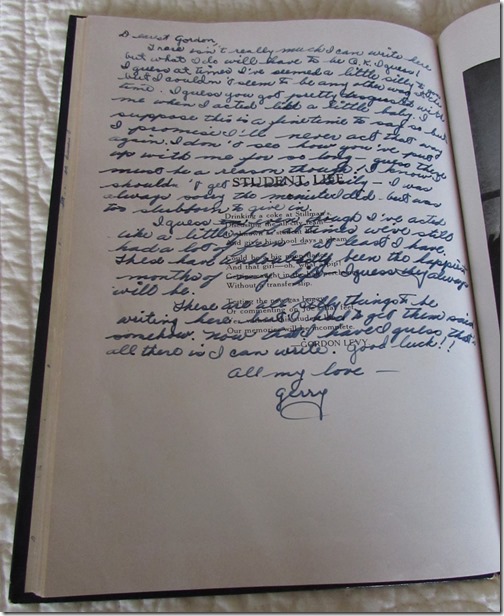 Dearest Gordon,
There isn't really much I can write here
but what I do will have to be O.K. I guess!
I guess at times I've seemed a little silly to you
but I couldn't seem to be any other way at the
time. I guess you got pretty disgusted with
me when I acted like a little baby. I
suppose this is a fine time to say so but
I promise I'll never act that way
again. I don't see how you've put
up with me for so long — guess there
must be a reason though. I know I
shouldn't get so easily — I was
always sorry the minute I did but was
too stubborn to give in.
I guess though I've acted
like a little at times we've still
had a lot of fun — at least I have.
These have probably been the happiest
months of my life & I guess they always
will be.
These are all silly things to be
writing here but I had to get them said
somehow. Now that I have I guess that's
all there is I can write. Good luck!!
All my love —
Gerry
STUDENT LIFE
Drinking a coke at Stillman's
And that girl—oh,
Without transfer slip.
Or commenting on
Our memories will be incomplete.
—GORDON LEVY